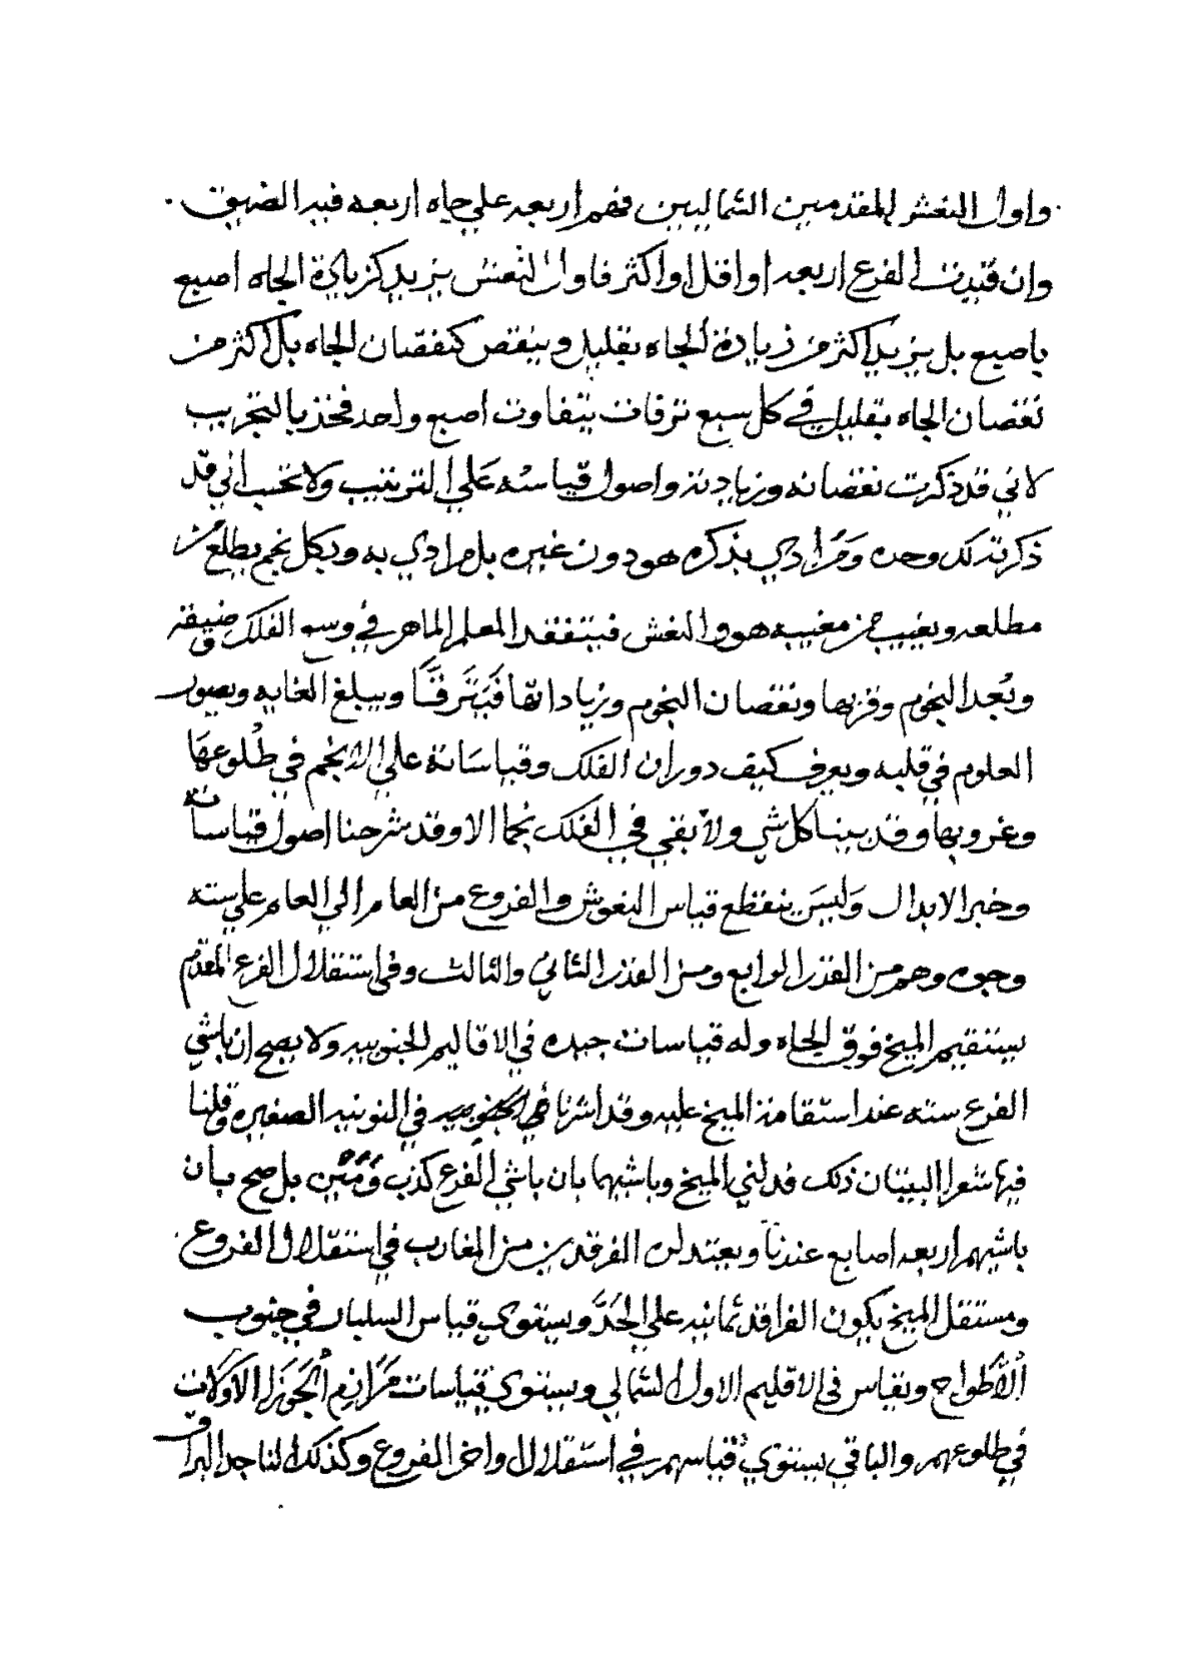 واول النعش المقدمين الشماليين فهم اربعه علي جاه اربعه فيد الضيق
وان قيدت الفرع اربعه او اقل او اكثر فاول النعش يزيد كزيادة الجاه اصبع
باصبع بل يزيد اكثر من زيادة الجاه بقليل وينقص كنقصان الجاه بل اكثر من
نقصان الجاه بقليل في كل سبع ترفات يتفاوت اصبع واحد فخذ بالتجريب
لاني قد ذكرت نقصانه وزيادته واصول قياسه علي الترتيب ولا تحسب اني قد
ذكرت ذلك وحده ومرادي بذكره هو دون غيره بل مرادي به وبكل نجم يطلع من
مطلعه ويغيب من مغيبه هو والنعش فيتفقد المعلم الماهر في وسع الفلك وضيقته
وبعد النجوم وقربها ونقصان النجوم وزياداتها فيترقا ويبلغ الغايه ويصور
العلوم في قلبه ويعرف كيف دوران الفلك وقياساته علي الانجم في طلوعها
وغروبها وقد بينا كل شي ولا بقي في الفلك نجما الا وقد شرحنا اصول قياساته
وخبر الابدال وليس ينقطع قياس النعوش والفروع من العام الي العام علي سته
وجوه وهم من القدر الرابع ومن القدر الثاني والثالث وفي استقلال الفرع المقدم
يستقيم الميخ فوق الجاه وله قياسات جيده في الاقاليم الجنوبيه ولا يصح ان باشي
الفرع سته عند استقامة الميخ عليه وقد اشرنا في الجنوبيه في النونيه الصغيره وقلنا
فيها شعرا البيتان ذلك فدلني الميخ وباشيهما بان باشي الفرع كذب ومين بل صح بان
باشيهم اربعه اصابع عندنا ويعتدلن الفرقدين من المغارب في استقلال الفروع
ومستقل الميخ يكون الفراقد ثمانيه علي الجد ويستوي قياس السلبار في جنوب
الاطواح ويقاس في الاقليم الاول الشمالي ويستوي قياسات مرازم الجوزا الاولات
في طلوعهم والباقي يستوي قياسهم في استقلال واخر الفروع وكذلك لنا جد البراق